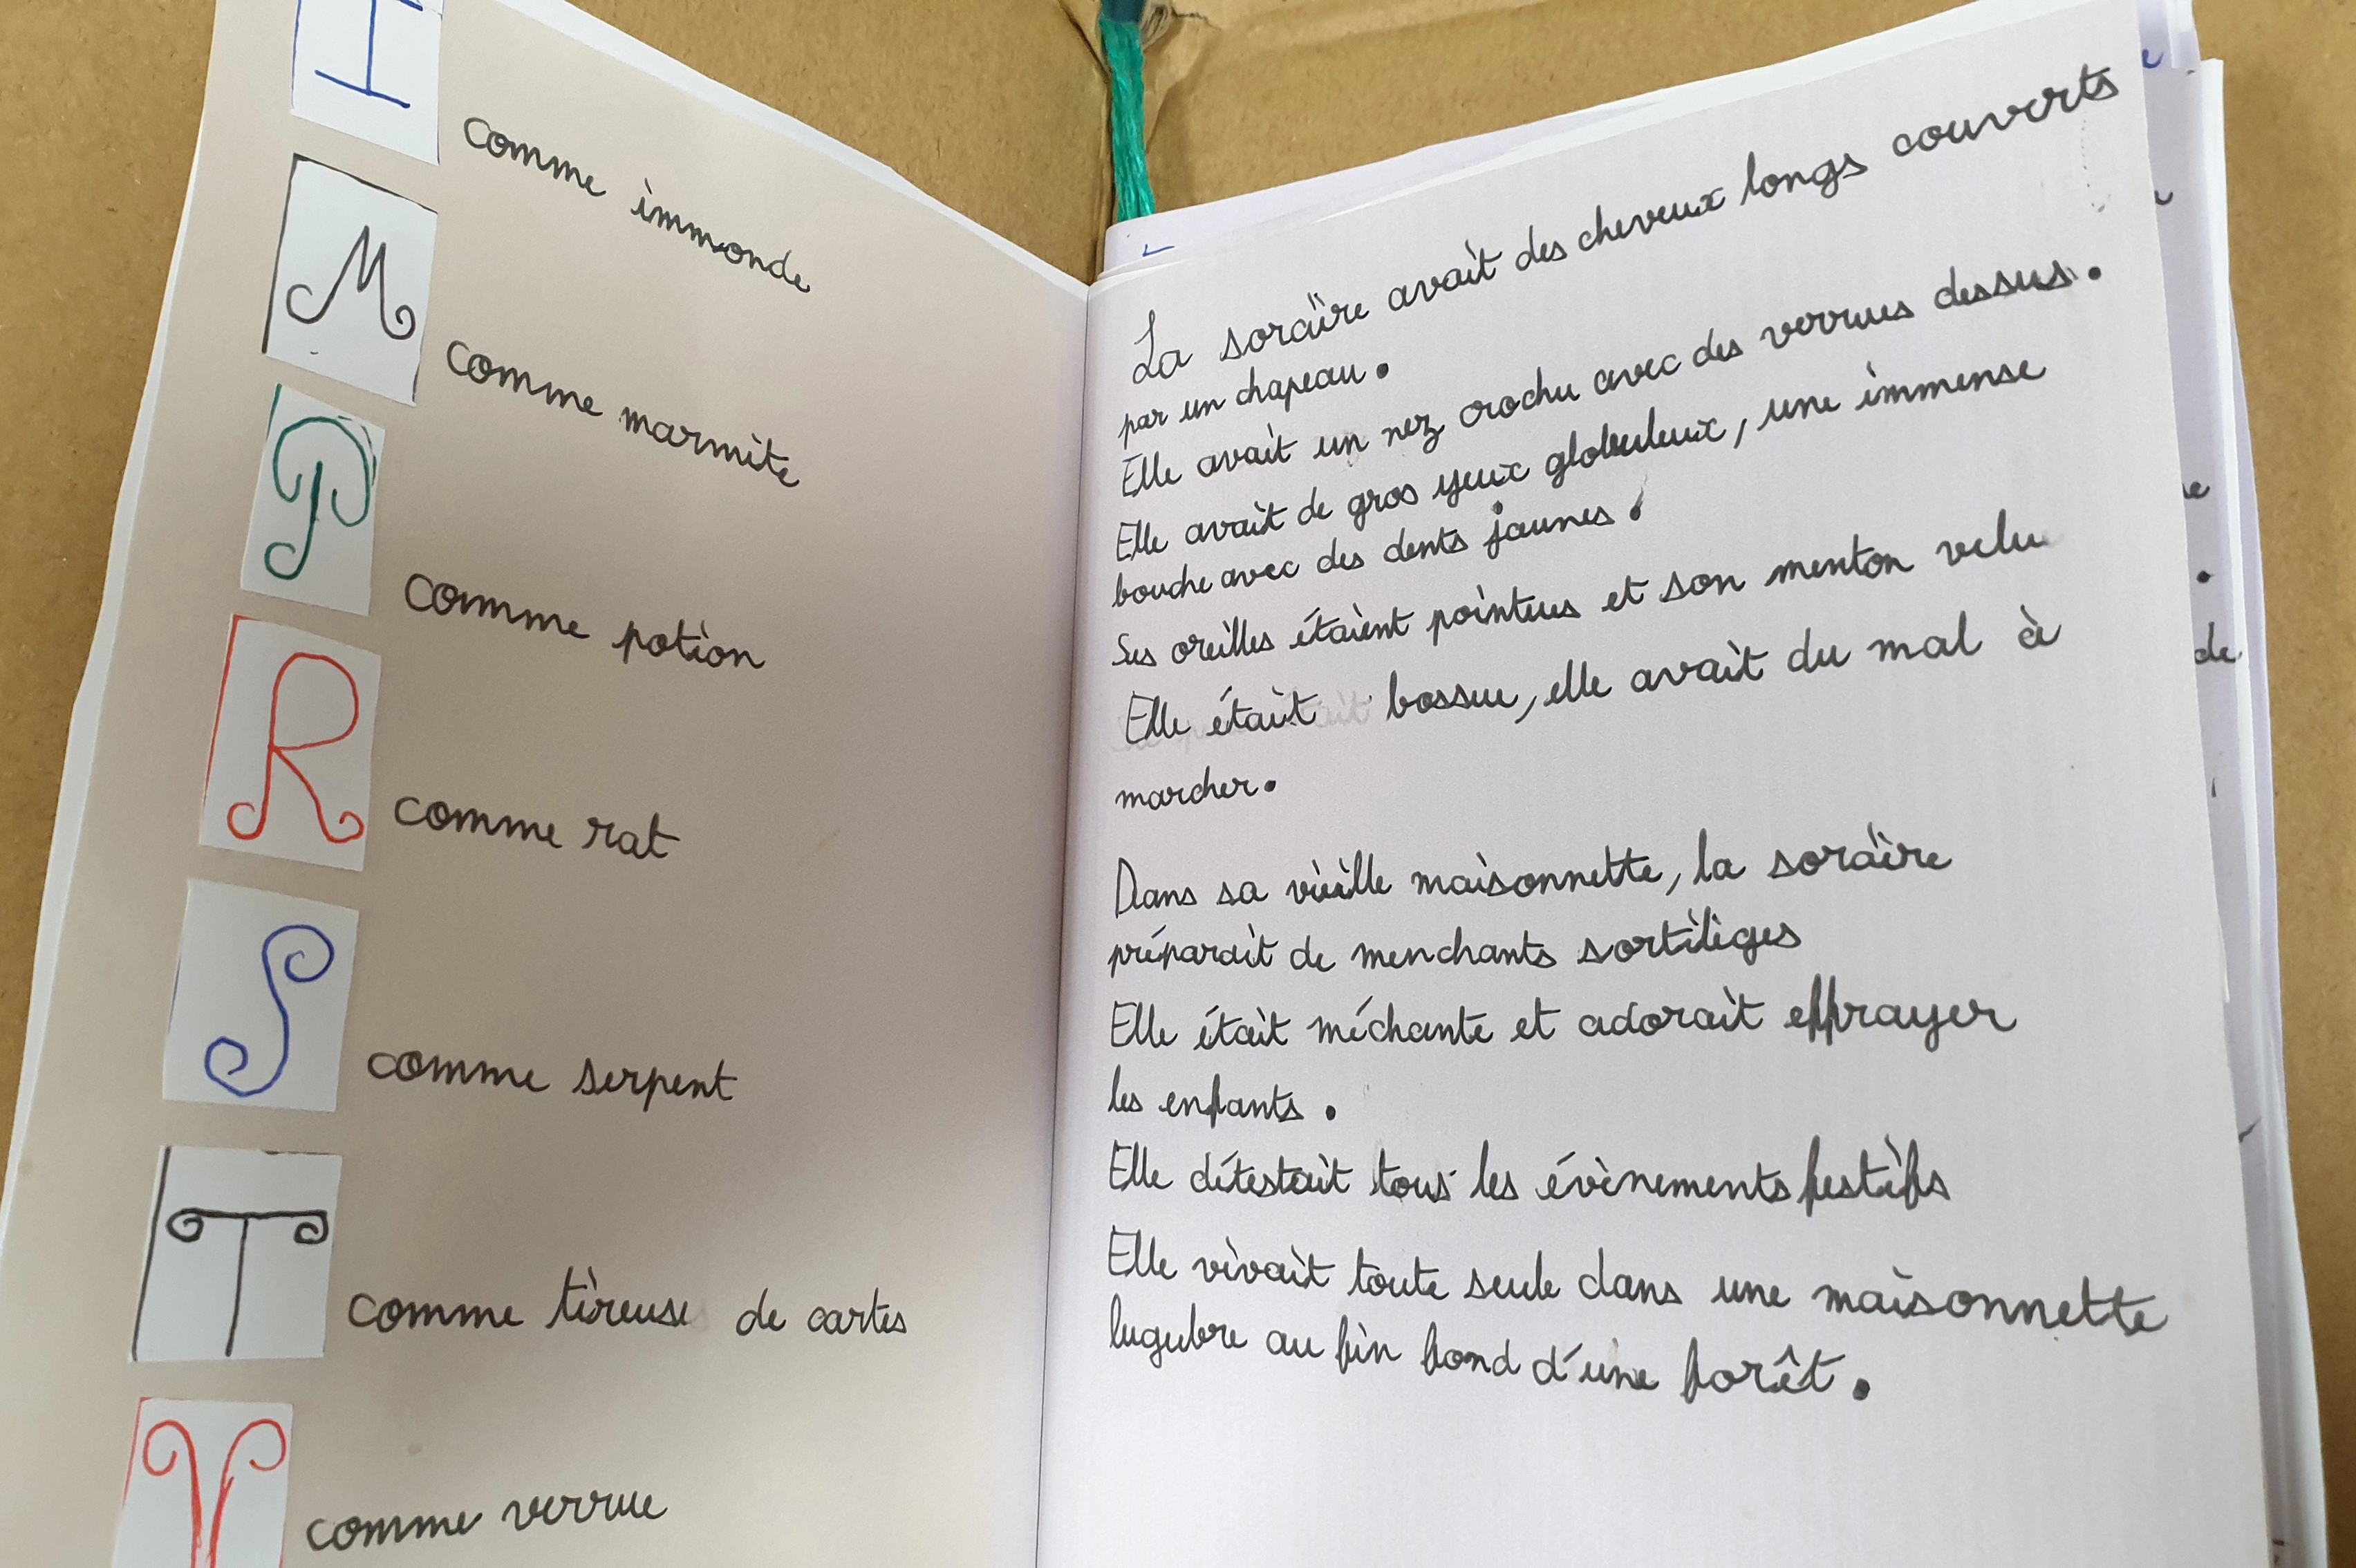 I
comme immonde
M
comme marmite
P
comme potion
R
comme rat
S
comme serpent
T
comme tireuse de cartes
V
comme verrue
La sorcière avait des cheveux longs couverts
par un chapeau.
Elle avait un nez crochu avec des verrues dessus.
Elle avait de gros yeux globuleux, une immense
bouche avec des dents jaunes.
Ses oreilles étaient pointues et son menton velu
Elle était bossue, elle avait du mal à
marcher.
Dans sa vieille maisonnette, la sorcière
préparait de menchants sortilèges
Elle était méchante et adorait effrayer
les enfants.
Elle détestait tous les évènements festifs
Elle vivait toute seule dans une maisonnette
lugubre au fin fond d'une forêt.
de